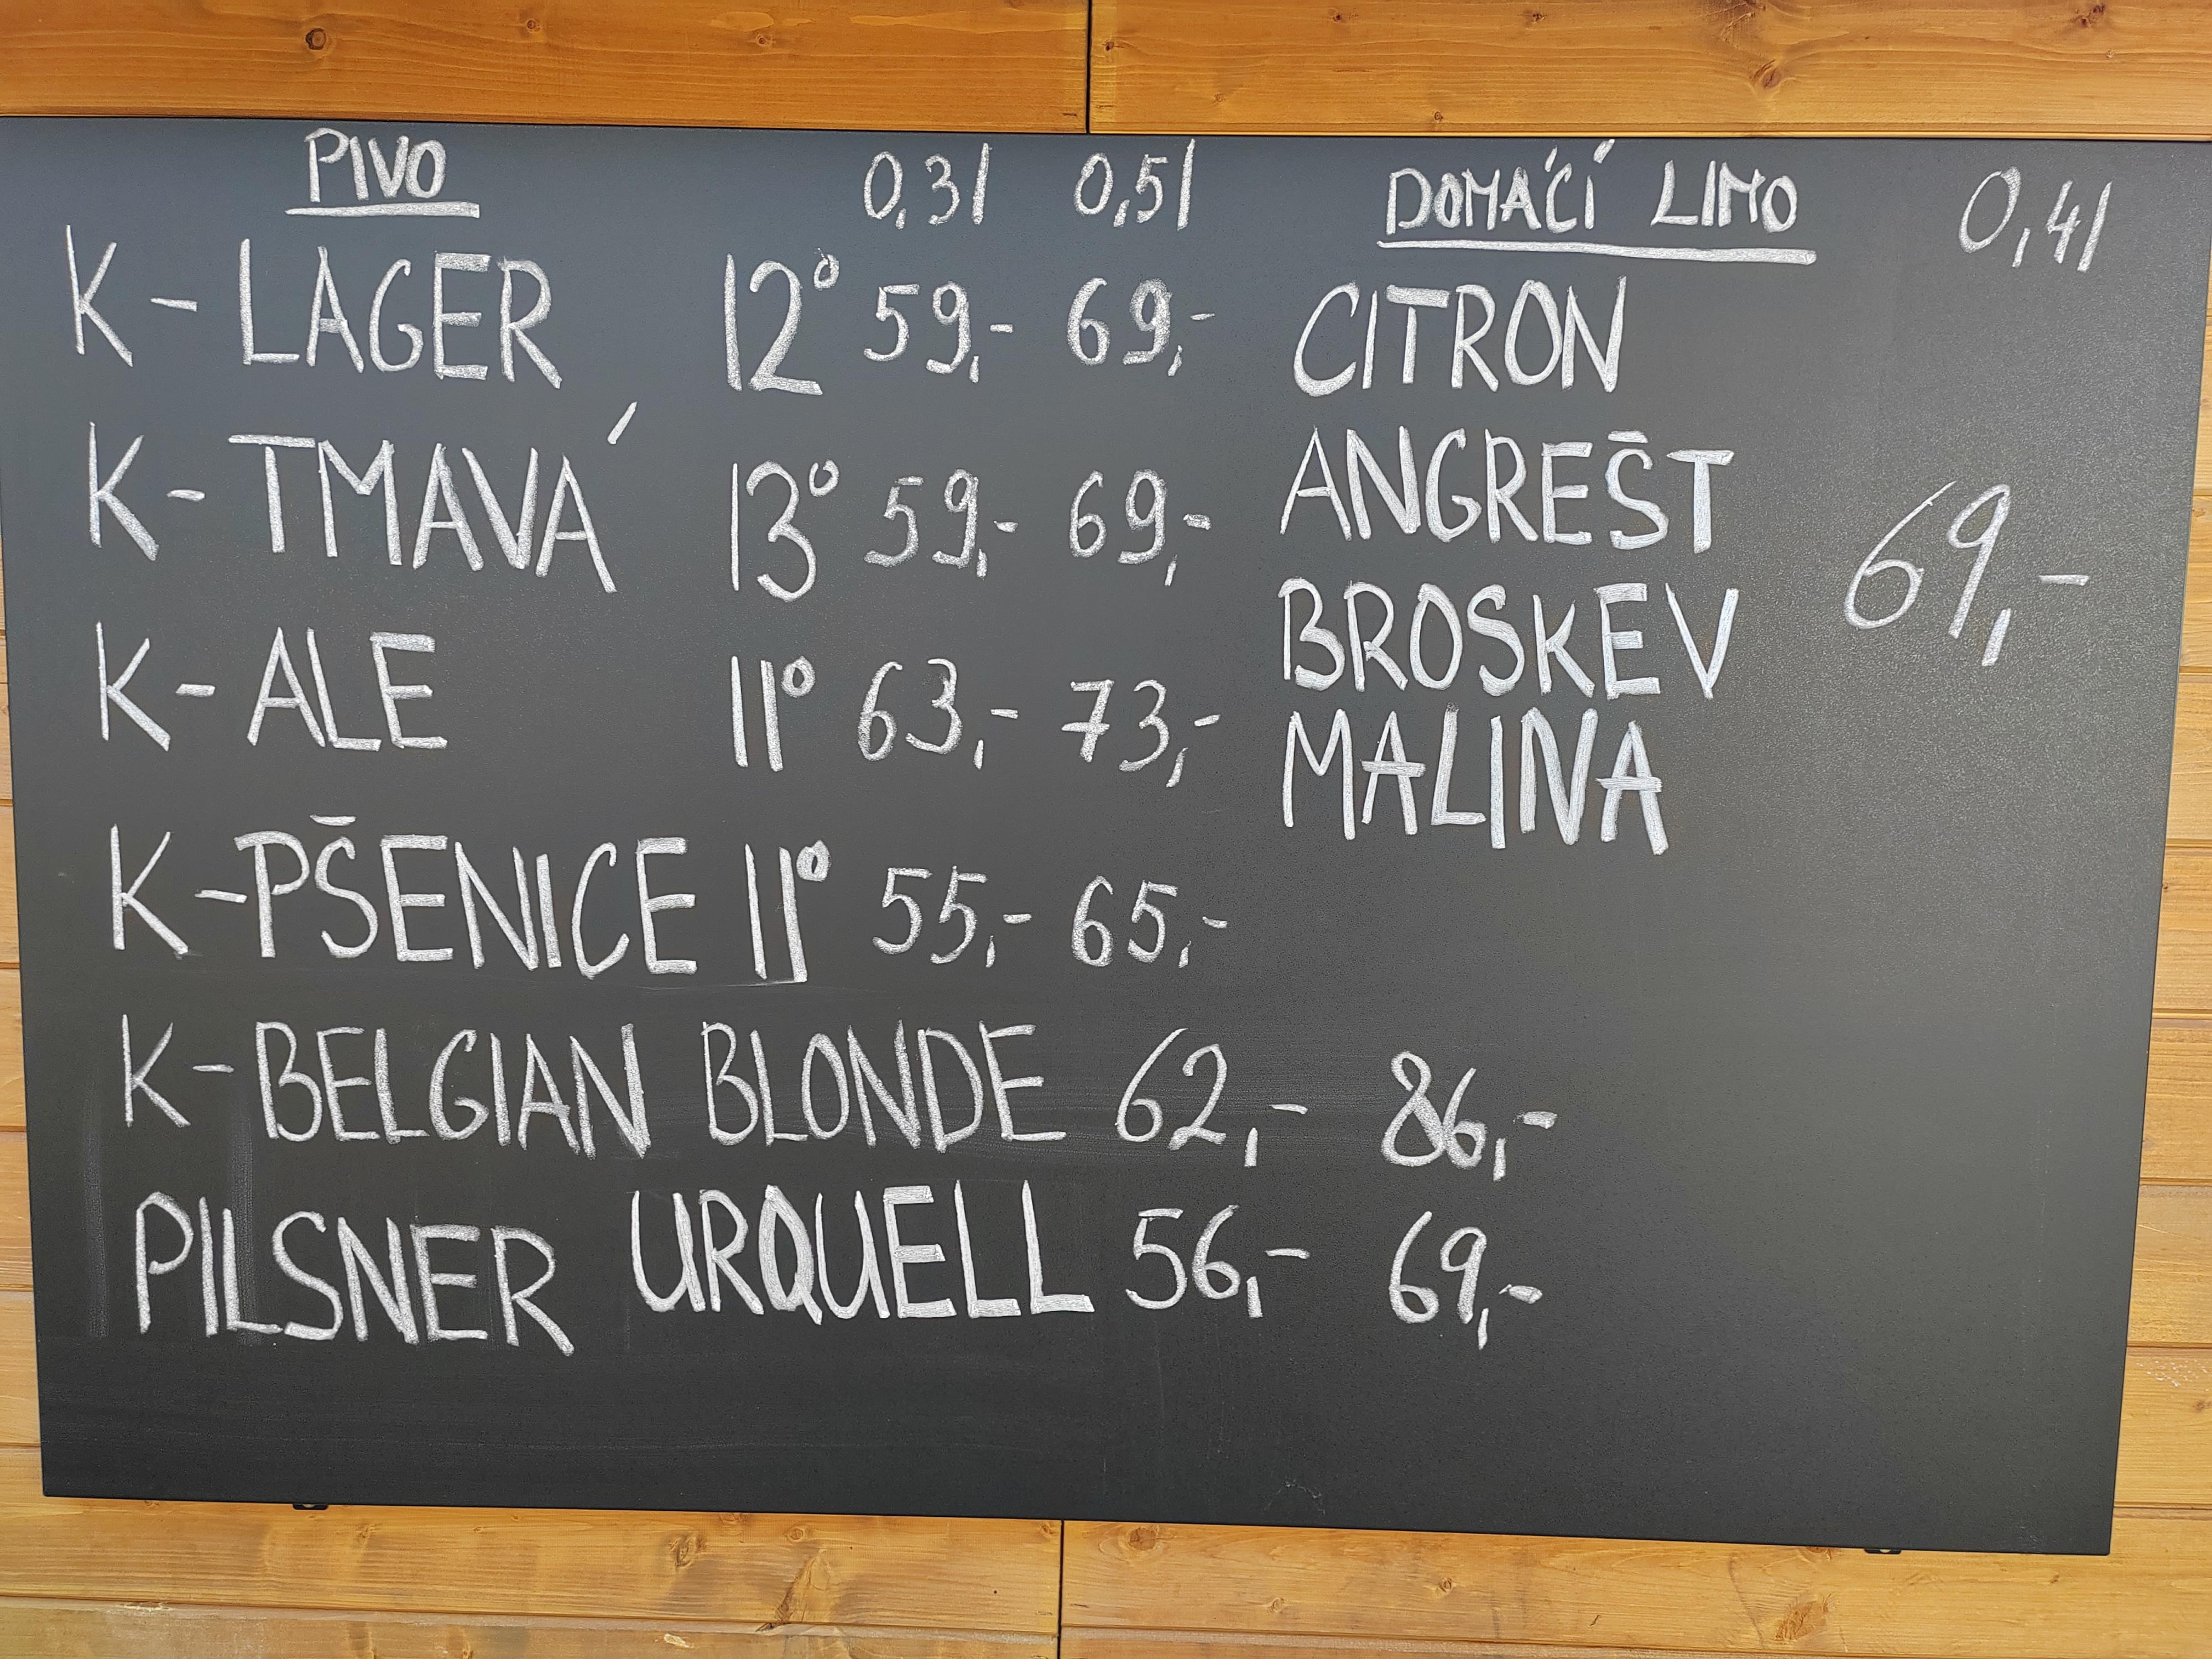 PIVO 0,3l 0,5l
K - LAGER 12° 59,- 69,-
K - TMAVÁ 13° 59,- 69,-
K - ALE 11° 63,- 73,-
K - PŠENICE 11° 55,- 65,-
K - BELGIAN BLONDE 62,- 86,-
PILSNER URQUELL 56,- 69,-
DOMÁCÍ LIMO 0,4l
CITRON
ANGREŠT
69,-
BROSKEV
MALINA